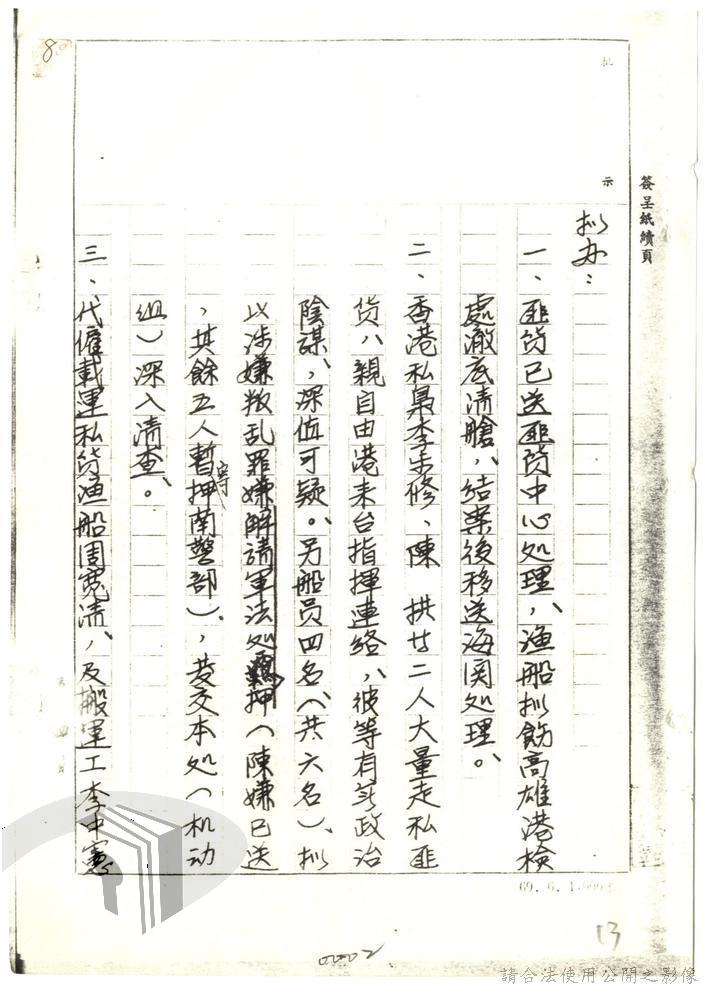 8
批示
簽呈紙續頁
拟办：
一、匪货已送匪货中心处理，渔船拟飭高雄港檢
處澈底清艙，結案後移送海関处理。
二、香港私梟李 修、陳 拱廿二人大量走私匪
货，親自由港来台指揮連絡，彼等有无政治
陰謀，深值可疑。另船员四名（共六名）、拟
以涉嫌叛乱罪嫌解請軍法处 押（陳嫌已送
，其餘五人暫寄押南警部），发交本处（机动
組）深入清查。
三、代僱載運私货渔船周寛清，及搬運工李中憲
69. 6. 1.
13
0002
請合法使用公開之影像